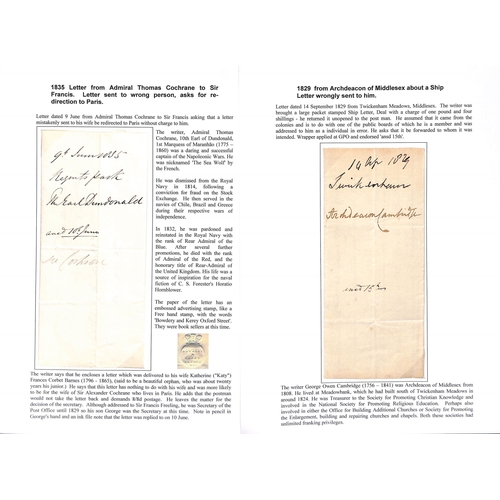 1835 Letter from Admiral Thomas Cochrane to Sir
Francis. Letter sent to wrong person, asks for re-
direction to Paris.
Letter dated 9 June from Admiral Thomas Cochrane to Sir Francis asking that a letter
mistakenly sent to his wife be redirected to Paris without charge to him.
The writer, Admiral Thomas
Cochrane, 10th Earl of Dundonald,
1st Marquess of Maranhão (1775
– 1860) was a daring and successful
captain of the Napoleonic Wars. He
was nicknamed 'The Sea Wolf' by
the French.
He was dismissed from the Royal
Navy in 1814, following a
conviction for fraud on the Stock
Exchange. He then served in the
navies of Chile, Brazil and Greece
during their respective wars of
independence.
In 1832, he was pardoned and
reinstated in the Royal Navy with
the rank of Rear Admiral of the
Blue. After several further
promotions, he died with the rank
of Admiral of the Red, and the
honorary title of Rear-Admiral of
the United Kingdom. His life was a
source of inspiration for the naval
fiction of C. S. Forester's Horatio
Hornblower.
The paper of the letter has an
embossed advertising stamp, like a
Free hand stamp, with the words
'Bowdery and Kerey Oxford Street'.
They were book sellers at this time.
9th June 1835
Regents park
The Earl Dundonald
ansd 10th June
The writer says that he encloses a letter which was delivered to his wife Katherine ("Katy")
Frances Corbet Barnes (1796 - 1865), (said to be a beautiful orphan, who was about twenty
years his junior). He says that this letter has nothing to do with his wife and was more likely
to be for the wife of Sir Alexander Cochrane who lives in Paris. He adds that the postman
would not take the letter back and demands 8/8d postage. He leaves the matter for the
decision of the secretary. Although addressed to Sir Francis Freeling, he was Secretary of the
Post Office until 1829 so his son George was the Secretary at this time. Note in pencil in
George's hand and an ink file note that the letter was replied to on 10 June.
1829 from Archdeacon of Middlesex about a Ship
Letter wrongly sent to him.
Letter dated 14 September 1829 from Twickenham Meadows, Middlesex. The writer
was brought a large packet stamped Ship Letter, Deal with a charge of one pound and four
shillings - he returned it unopened to the post man. He assumed that it came from the
colonies and is to do with one of the public boards of which he is a member and was
addressed to him as a individual in error. He asks that it be forwarded to whom it was
intended. Wrapper applied at GPO and endorsed 'ansd 15th'.
14 Sep 1829
Twickenham
Archdeacon Cambridge
ansd 15th
The writer George Owen Cambridge (1756 – 1841) was Archdeacon of Middlesex from
1808. He lived at Meadowbank, which he had built south of Twickenham Meadows in
around 1824. He was Treasurer to the Society for Promoting Christian Knowledge and
involved in the National Society for Promoting Religious Education. Perhaps also
involved in either the Office for Building Additional Churches or Society for Promoting
the Enlargement, building and repairing churches and chapels. Both these societies had
unlimited franking privileges.